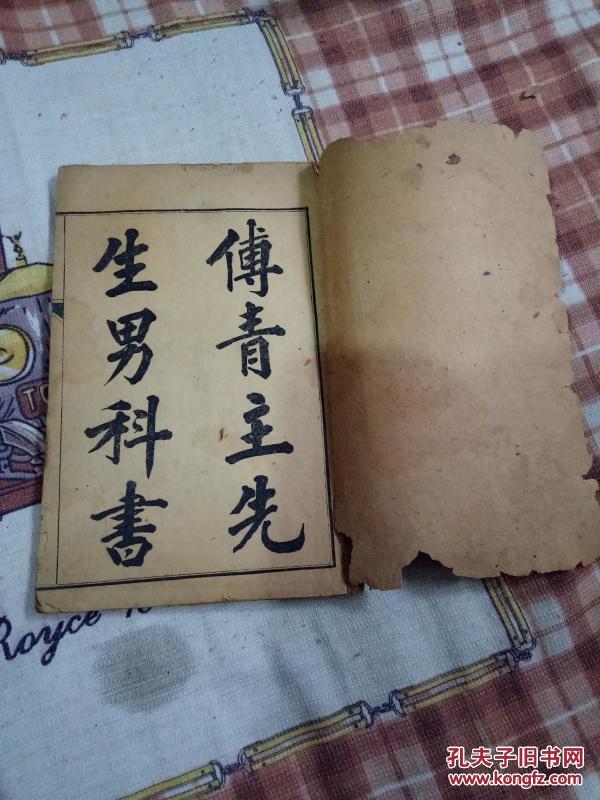 傅青主先
生男科書
Royce
孔夫子旧书网
www.kongfz.com